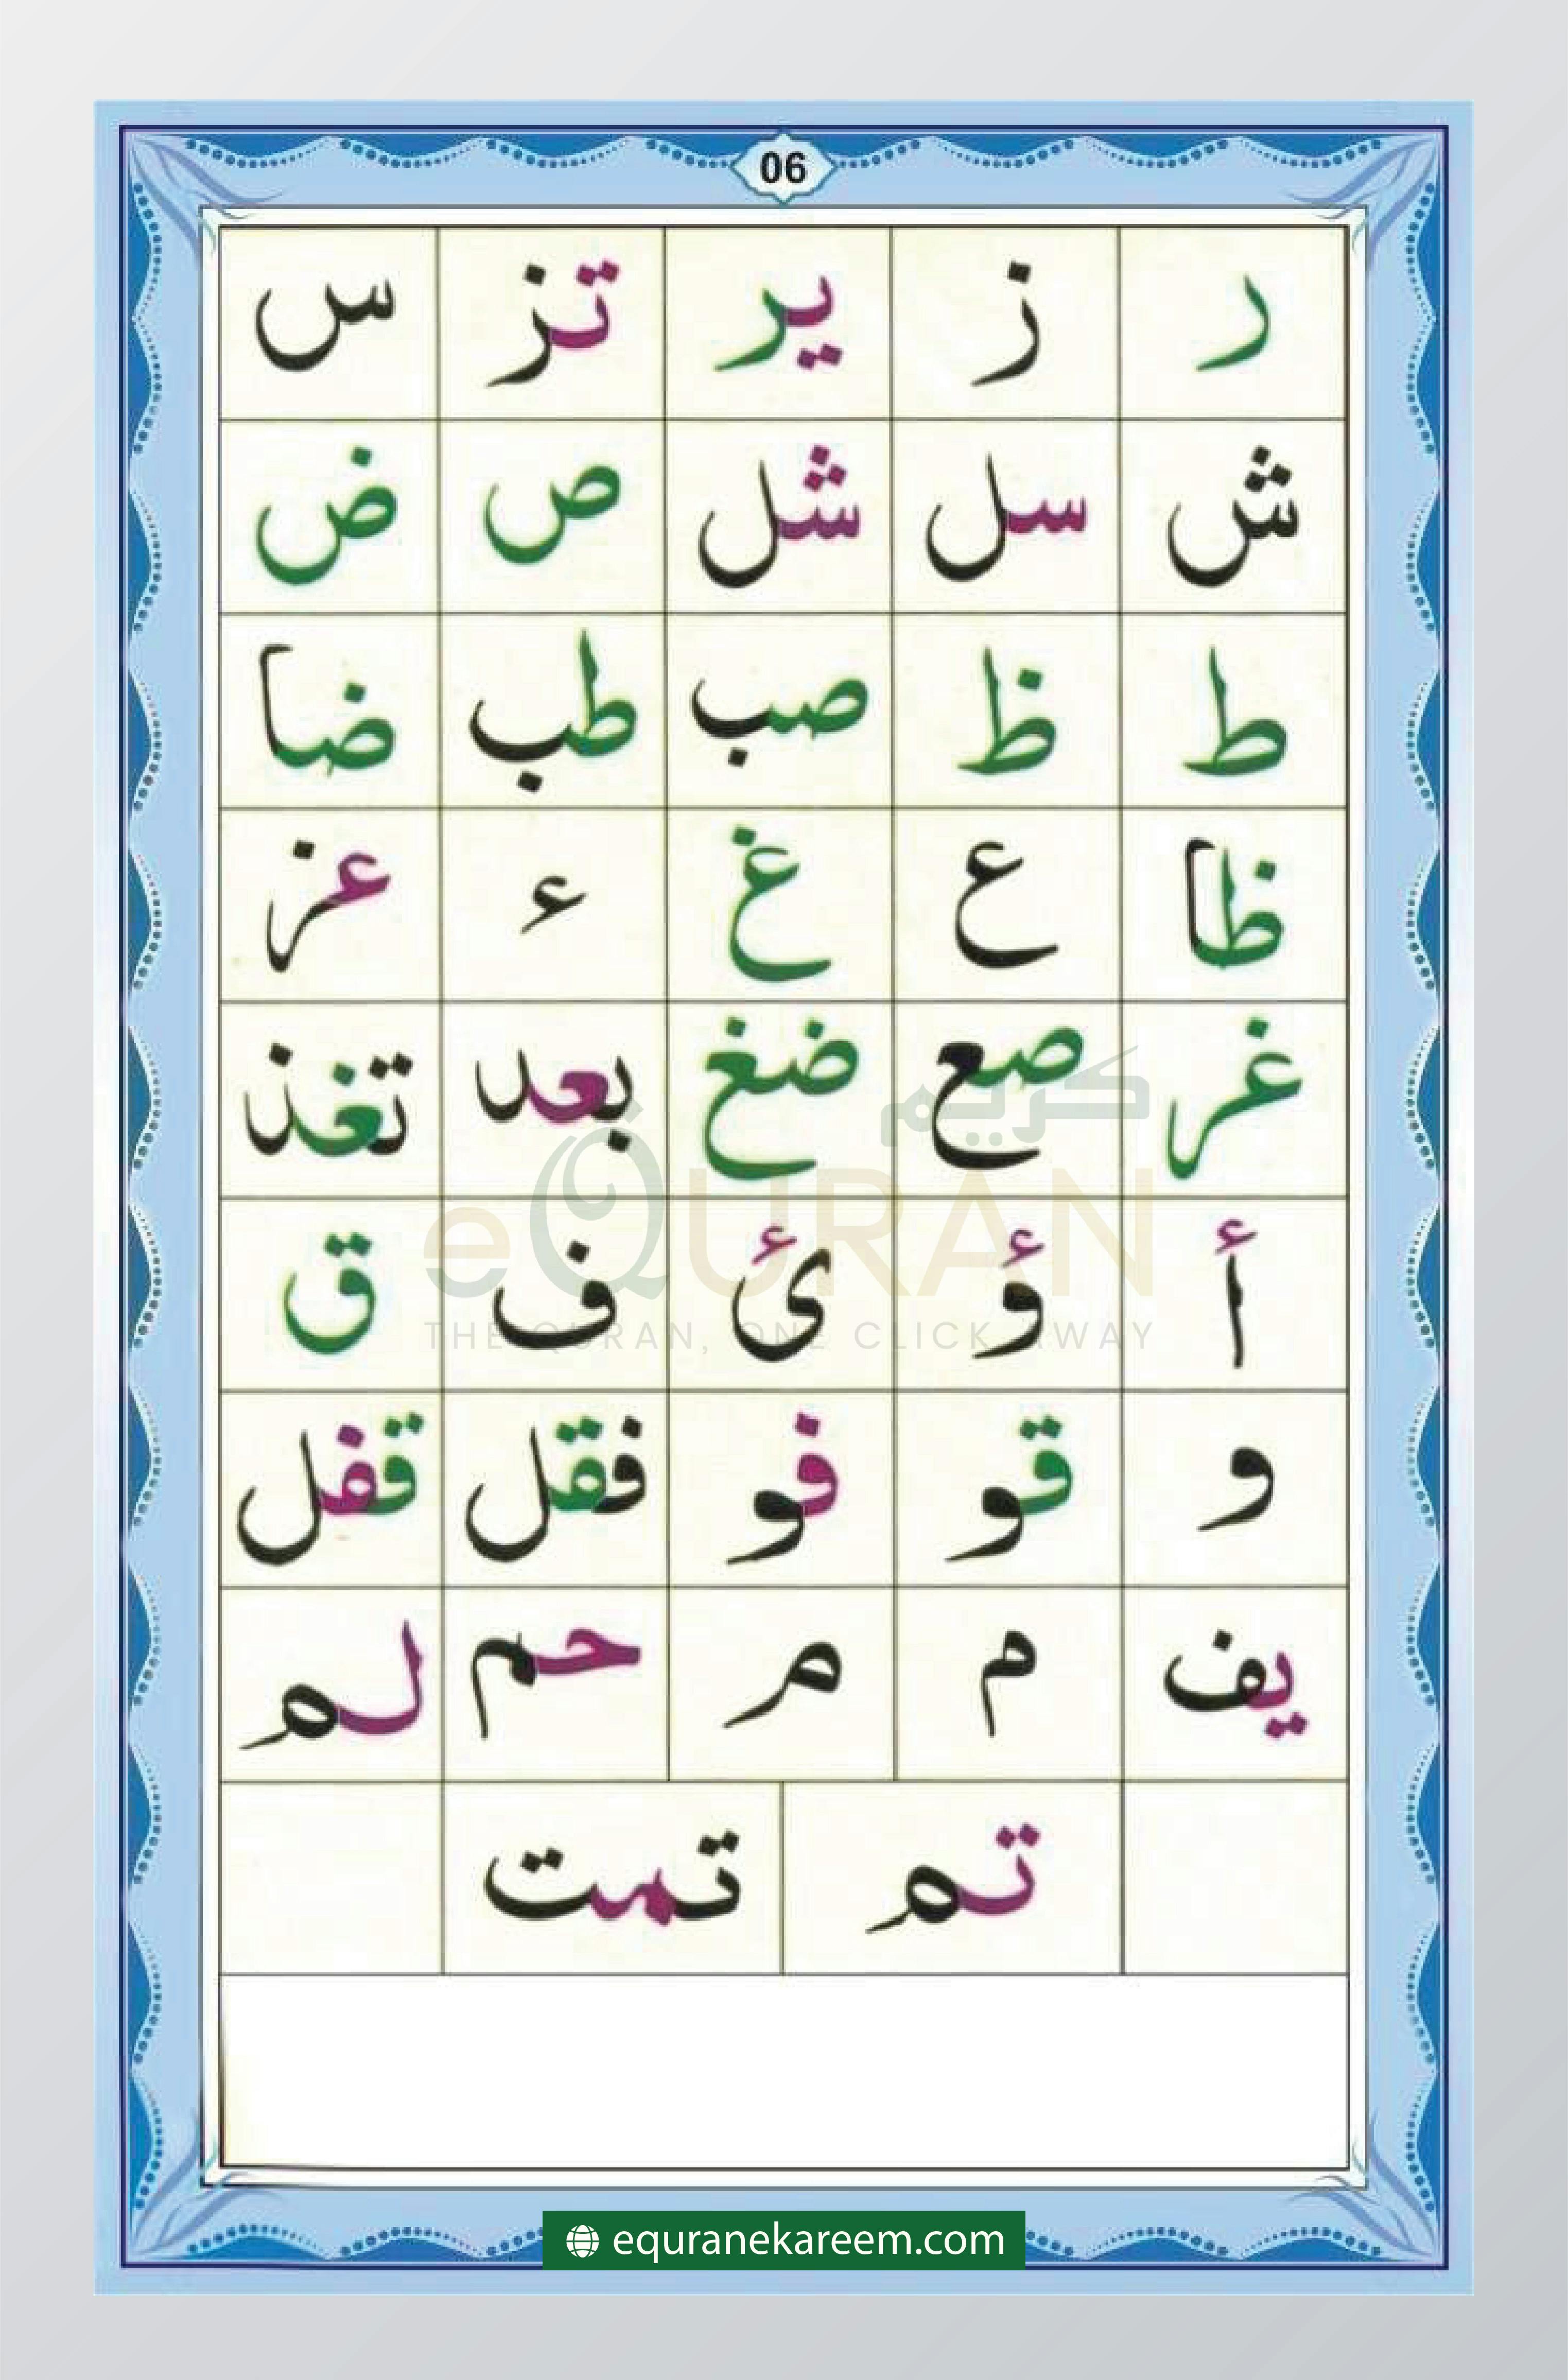 06
ر ز یر تز س
ش سل شل ص ض
ط ظ صب طب ضا
ظا ع غ ء عز
غر صع ضغ بعد تغذ
أ ؤ ئ ف ق
و قو فو فقل قفل
یف م م حم لم
تم تمت
كريم
eQURAN
THE QURAN, ONE CLICK AWAY
equranekareem.com